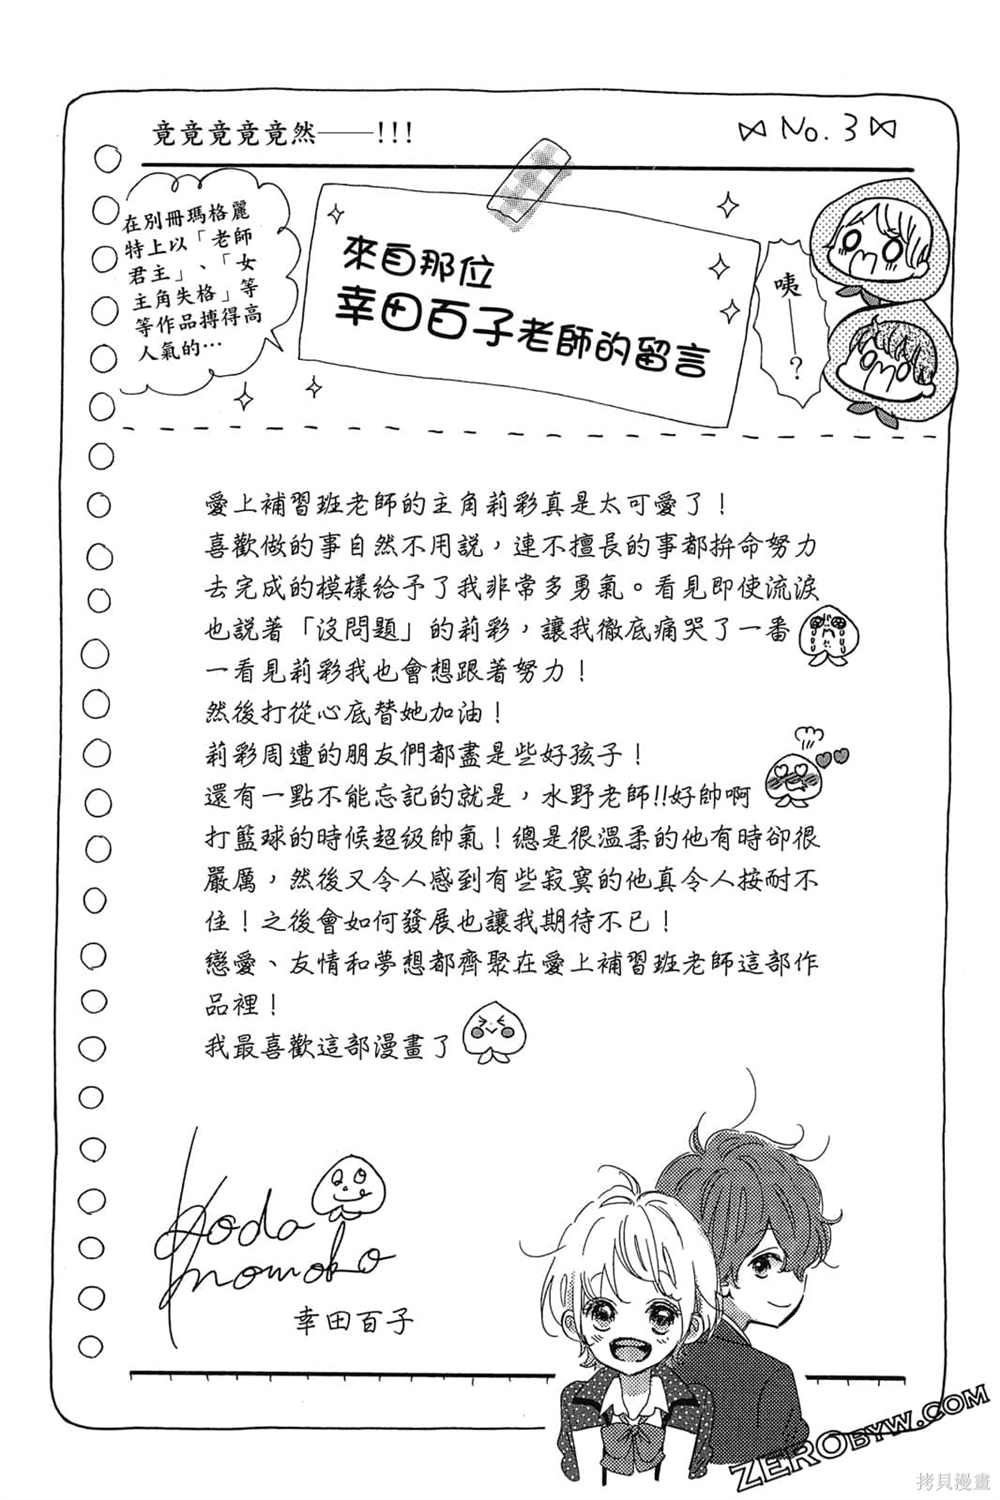 竟竟竟竟竟然──!!!
No. 3
在別冊瑪格麗
特上以「老師
君主」、「女
主角失格」等
等作品搏得高
人氣的…
來自那位
幸田百子老師的留言
咦──?
愛上補習班老師的主角莉彩真是太可愛了！
喜歡做的事自然不用說，連不擅長的事都拚命努力
去完成的模樣給予了我非常多勇氣。看見即使流淚
也說著「沒問題」的莉彩，讓我徹底痛哭了一番
一看見莉彩我也會想跟著努力！
然後打從心底替她加油！
莉彩周遭的朋友們都盡是些好孩子！
還有一點不能忘記的就是，水野老師!!好帥啊
打籃球的時候超級帥氣！總是很溫柔的他有時卻很
嚴厲，然後又令人感到有些寂寞的他真令人按耐不
住！之後會如何發展也讓我期待不已！
戀愛、友情和夢想都齊聚在愛上補習班老師這部作
品裡！
我最喜歡這部漫畫了
Koda
Momoko
幸田百子
ZEROBYW.COM
拷貝漫畫